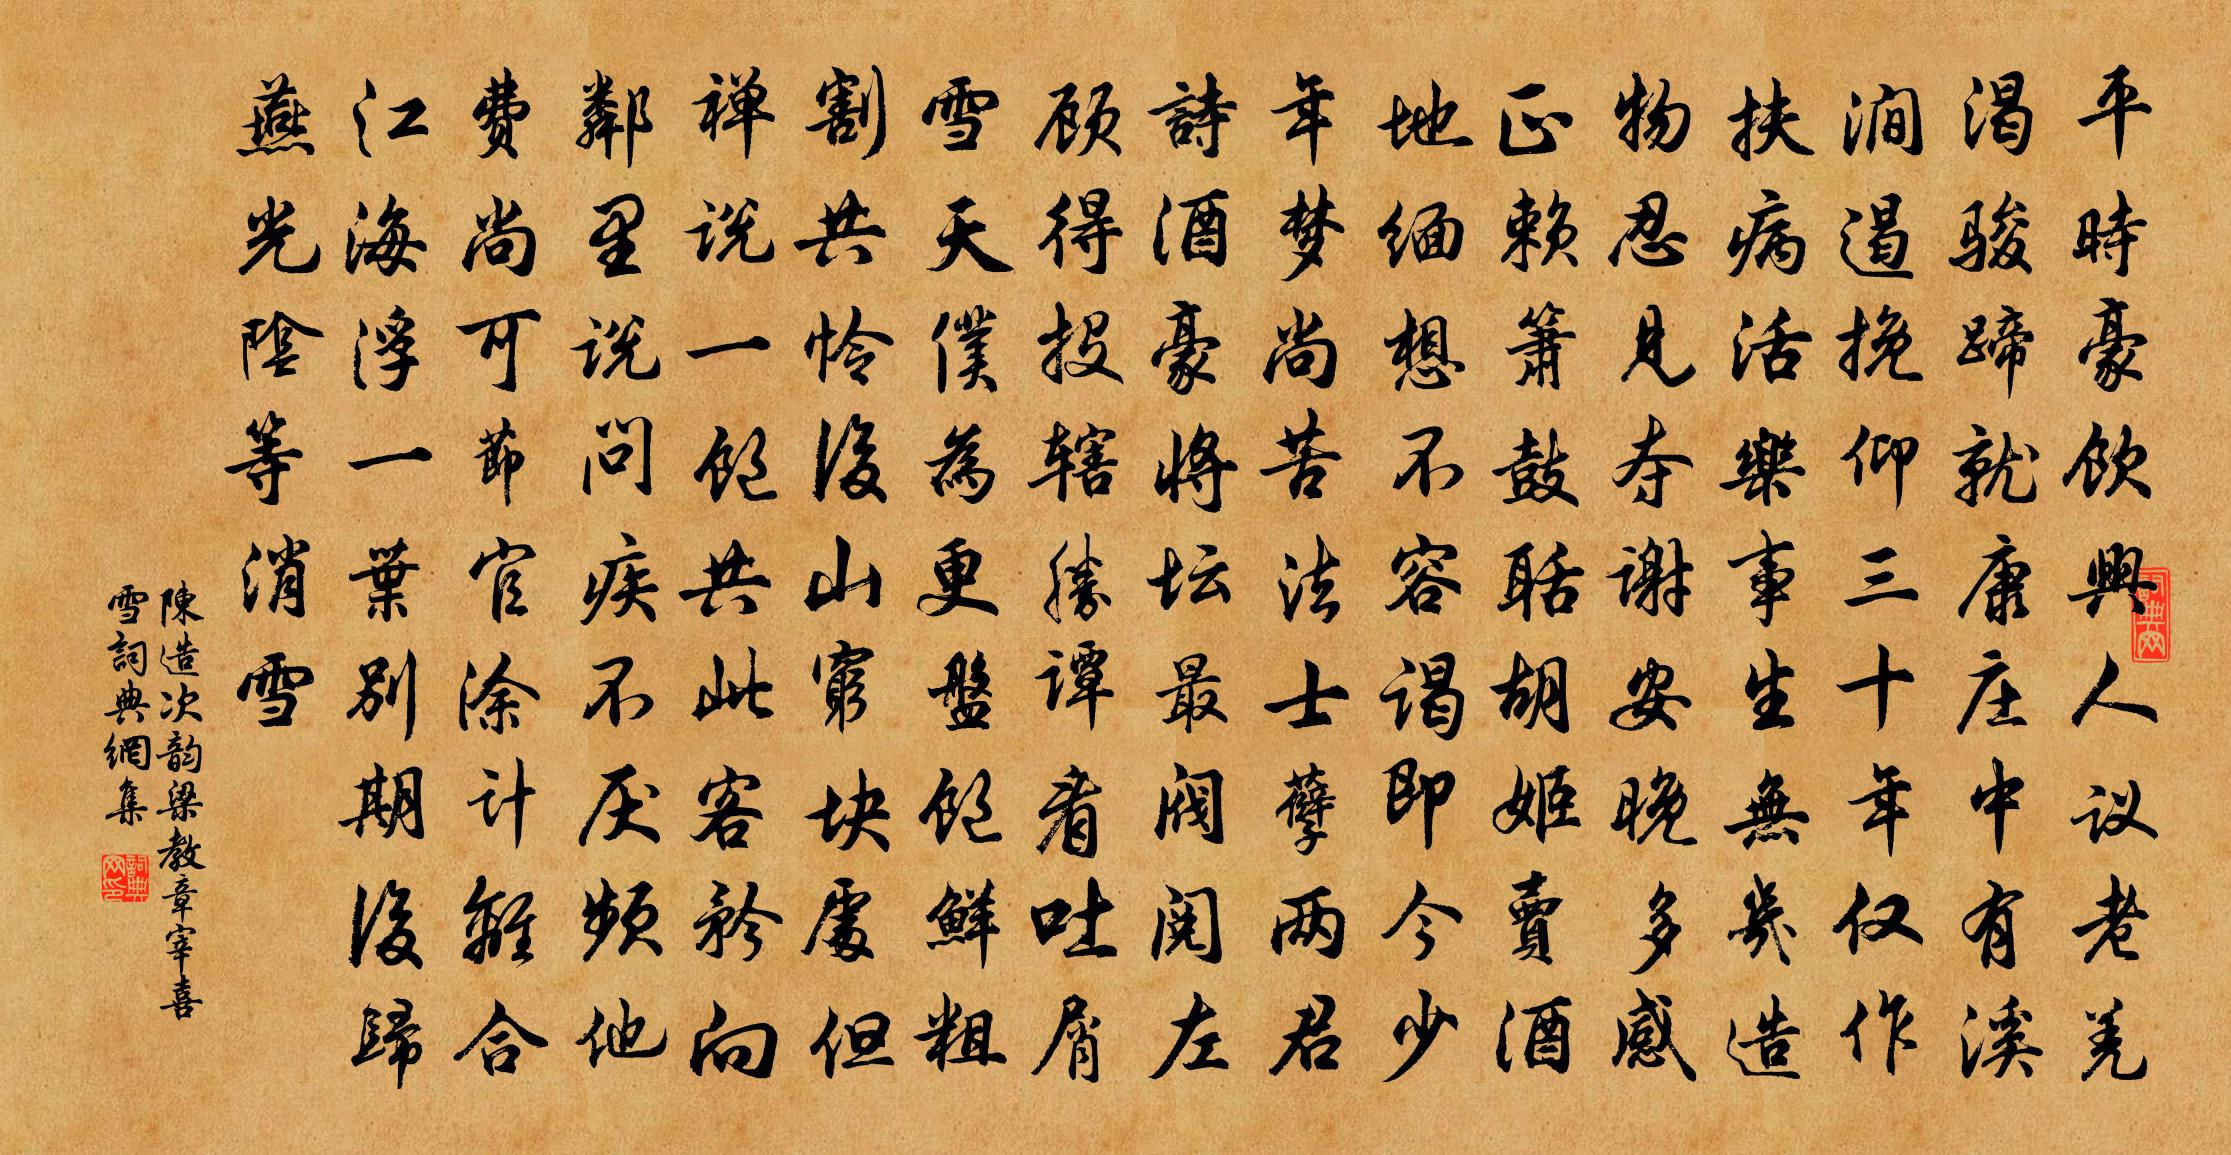 平時豪飲興人议老羌
渴骏蹄就康庄中有溪
澗遏挽仰三十年仅作
扶病活樂事生無幾造
物忍見夺谢安晚多感
正赖箫鼓聒胡姬賣酒
地缅想不容谒即今少
年梦尚苦法士孽两君
詩酒豪将坛最阀阅左
顾得投辖勝谭看吐屑
雪天僕為更盤飽鮮粗
割共怜後山窮块處但
禅说一飽共此客矜向
鄰里说问疾不厌频他
費尚可節官涂计離合
江海浮一葉别期後歸
燕光陰等消雪
陳造次韵梁教章宰喜
雪詞典網集